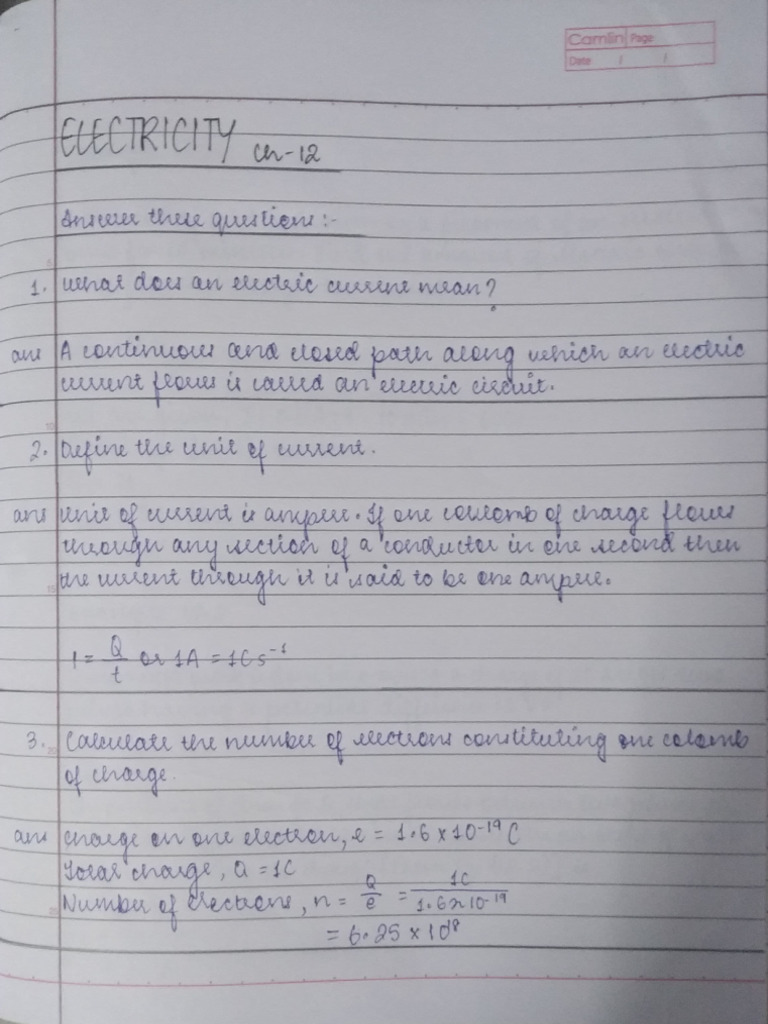 Camlin Page
Date / /
ELECTRICITY Ch-12
Answer these questions :-
1. What does an electric current mean?
ans A continuous and closed path along which an electric
current flows is called an electric circuit.
2. Define the unit of current.
ans Unit of current is ampere. If one coulomb of charge flows
through any section of a conductor in one second then
the current through it is said to be one ampere.
I = Q/t or 1A = 1Cs⁻¹
3. Calculate the number of electrons constituting one colomb
of charge.
ans Charge on one electron, e = 1.6 × 10⁻¹⁹ C
Total charge, Q = 1C
Number of electrons, n = Q/e = 1C/1.6×10⁻¹⁹
= 6.25 × 10¹⁸